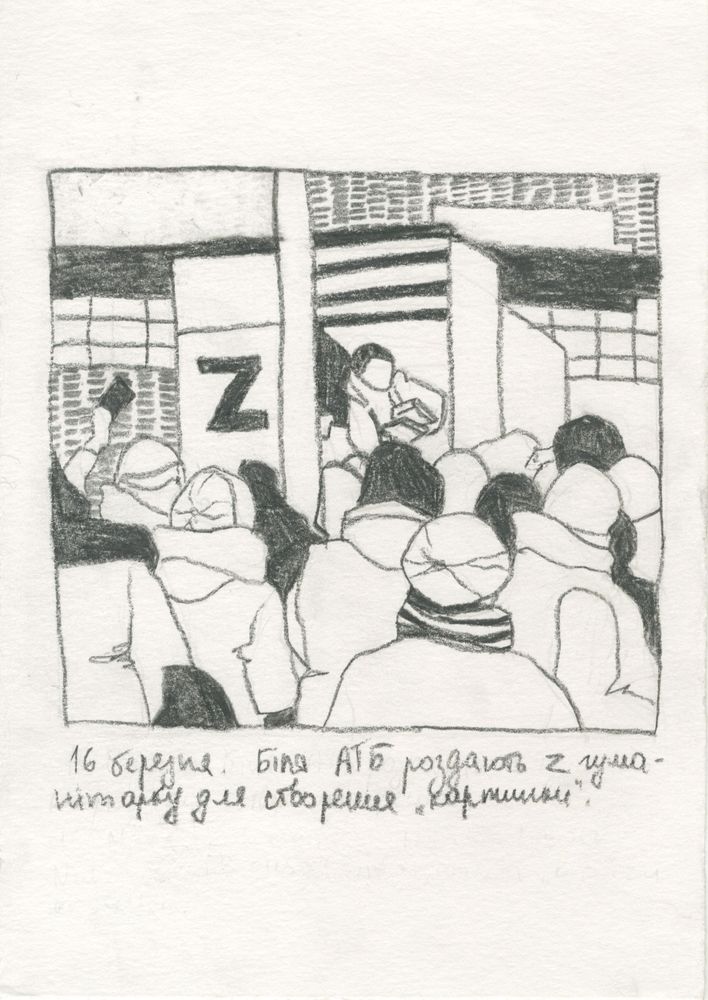 Z
16 березня. Біля АТБ роздають Z гума-
нітарку для створення „картинки".